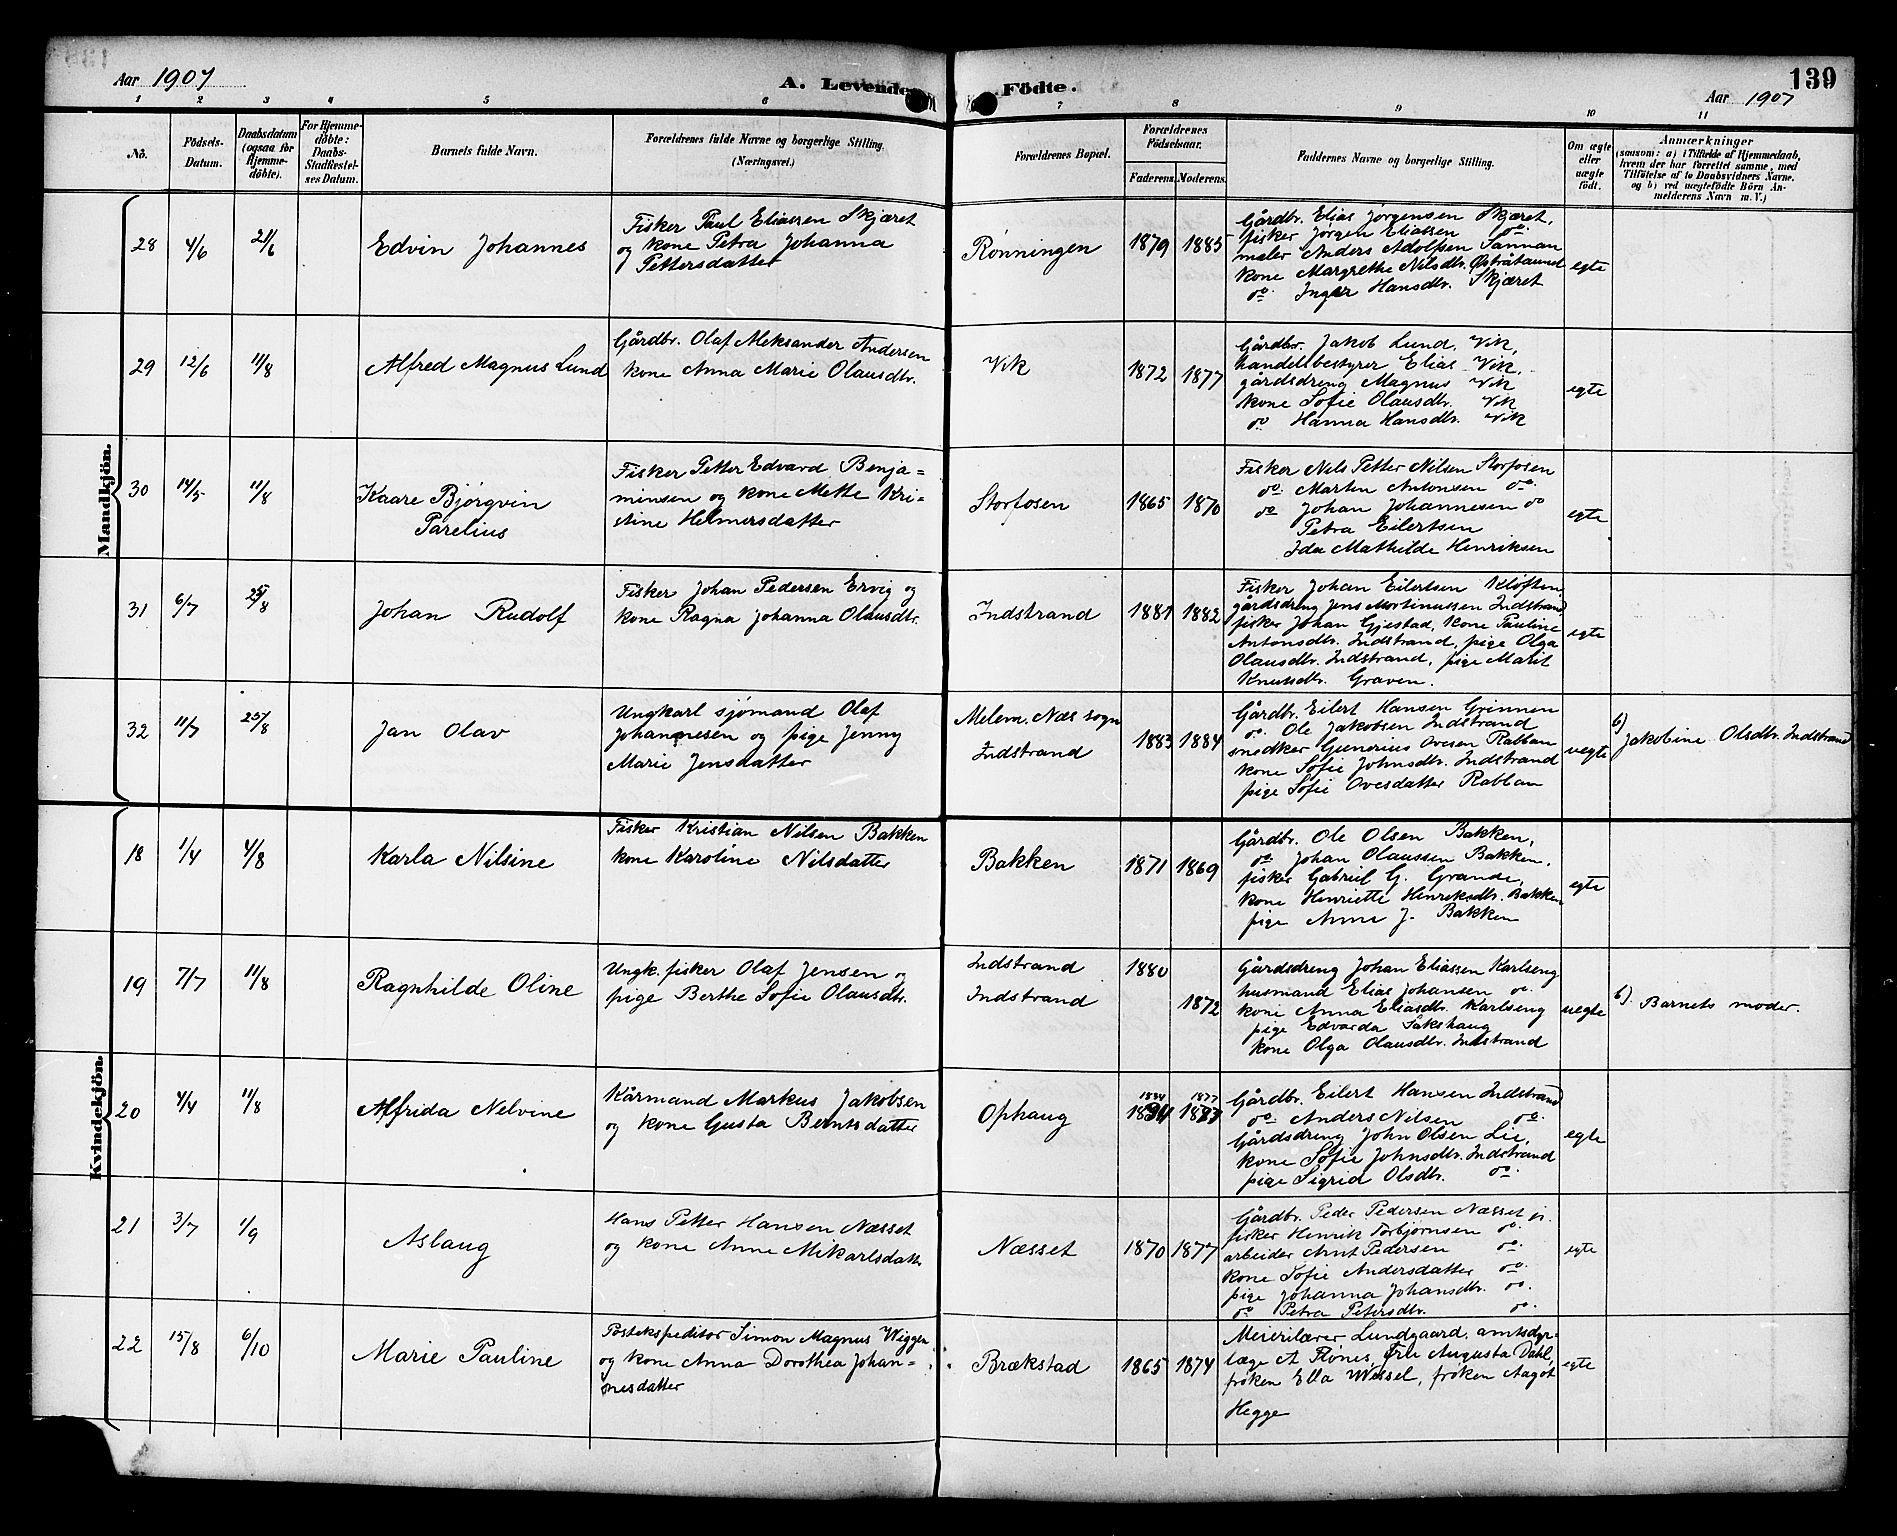 Aar 1907
A. Levende
Födte.
139
Aar 1907
1 2 3 4 5 6 7 8 9 10 11
No.
Födsels-Datum.
Daabsdatum (ogsaa for Hjemme-döbte).
For Hjemme-döbte: Daabs-Stadfæstel-ses Datum.
Barnets fulde Navn.
Forældrenes fulde Navne og borgerlige Stilling. (Næringsvei.)
Forældrenes Bopæl.
Forældrenes Födselsaar.
Faderens. Moderens.
Faddernes Navne og borgerlige Stilling.
Om ægte eller uægte födt.
Anmærkninger
(saasom: a) i Tilfælde af Hjemmedaab, hvem der har forrettet samme, med Tilföielse af to Daabsvidners Navne. og b) ved uægtefödte Börn Anmelderens Navn m. V.)
Mandkjön.
28 4/6 21/6 Edvin Johannes
Fisker Paul Eliassen Skjæret
og kone Petra Johanna
Pettersdatter
Rønningen 1879 1885
Gårdbr. Elias Jørgensen Skjæret,
fisker Jørgen Eliassen do.
maler Anders Adolfsen Sannan
kone Margrethe Nilsdtr. Østråtaunet
do. Inger Hansdtr. Skjæret
egte
29 12/6 11/8 Alfred Magnus Lund
Gårdbr. Olaf Aleksander Andersen
kone Anna Marie Olausdtr.
Vik 1872 1877
Gårdbr. Jakob Lund, Vik,
handelsbestyrer Elias Vik,
gårdsdreng Magnus Vik
kone Sofie Olausdtr. Vik
do Hanna Hansdtr. Vik
egte
30 14/5 11/8 Kaare Bjørgvin
Parelius
Fisker Petter Edvard Benja=
minsen og kone Mette Kri=
stine Helmersdatter
Storfosen 1865 1870
Fisker Nels Petter Nilsen Storfosen
do. Martin Antonsen do.
do Johan Johannesen do
Petra Eilertsen
Ida Mathilde Henriksen
egte
31 6/7 25/8 Johan Rudolf
Fisker Johan Pedersen Ervig og
kone Ragna Johanna Olausdtr.
Indstrand 1881 1882
Fisker Johan Eilertsen Kløften
gårdsdreng Jens Mortinussen Indstrand
fisker Johan Gjestad, kone Pauline
Antonsdtr. Indstrand, pige Olga
Olausdtr. Indstrand, pige Marit
Knutsdtr. Graven.
egte
32 11/7 25/8 Jan Olav
Ungkarl sjømand Olaf
Johannesen og pige Jenny
Marie Jensdatter
Melem. Næs sogn
Indstrand 1883 1884
Gårdbr. Eilert Hansen Grinnen
do. Ole Jakobsen Indstrand
snedker Gunerius Ovesen Rabban
kone Sofie Johnsdtr. Indstrand
pige Sofie Ovesdatter Rabban
uegte
b) Jakobine Olsdtr. Indstrand
Kvindekjön.
18 1/4 4/8 Karla Nilsine
Fisker Kristian Nilsen Bakken
kone Karoline Nilsdatter
Bakken 1871 1869
Gårdbr. Ole Olsen Bakken,
do. Johan Olaussen Bakken,
fisker Gabriel G. Grande,
kone Henriette Henriksdtr. Bakken
pige Anna J. Bakken
egte
19 7/7 11/8 Ragnhilde Oline
Ungk. fisker Olaf Jensen og
pige Berthe Sofie Olausdtr.
Indstrand 1880
Indstrand 1872
Gårdsdreng Johan Eliassen Karlseng
husmand Elias Johansen do.
kone Anna Eliasdtr. Karlseng
pige Edvarda Sakshaug
kone Olga Olausdtr. Indstrand
uegte
b). Barnets moder.
20 4/4 11/8 Alfrida Nelvine
Kårmand Markus Jakobsen
og kone Gusta Berntsdatter
Ophaug 1877
Gårdbr. Eilert Hansen Indstrand
do. Anders Nilsen do.
Gårdsdreng John Olsen Lie,
kone Sofie Johnsdtr. Indstrand
pige Sigrid Olsdtr. do.
egte
21 3/7 1/9 Aslaug
Hans Petter Hansen Næsset
og kone Anne Mikarlsdatter
Næsset 1870 1877
Gårdbr. Peder Pedersen Næsset jr.
fisker Henrik Torbjørnsen do.
arbeider Arnt Pedersen do.
kone Sofie Andersdatter do.
pige Johanna Johansdtr. do.
do Petra Petersdtr. do.
egte
22 15/8 6/10 Marie Pauline
Postekspeditør Simon Magnus Wiggen
og kone Anna Dorothea Johan=
nesdatter
Brækstad 1865 1874
Meierilærer Lundgaard, amtsdyr-
læge A Rønes, fru Augusta Dahl,
frøken Ella Wessel, frøken Aagot
Hegge
egte